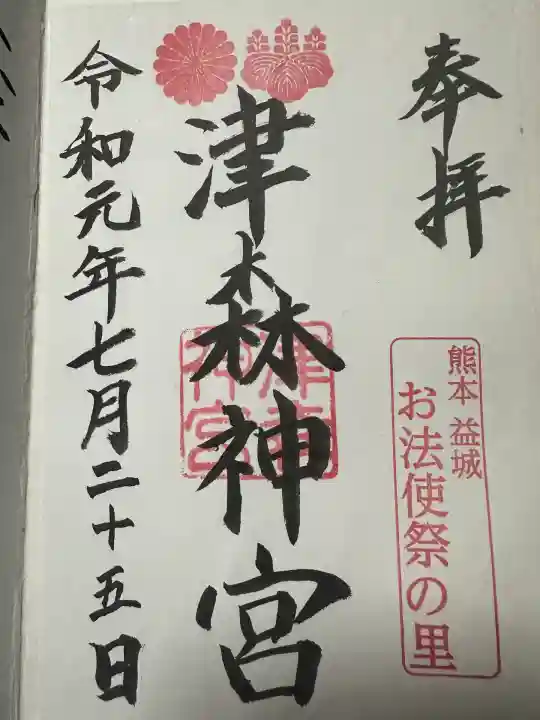 奉拝
熊本 益城
お法使祭の里
津森神宮
津森
神宮
令和元年七月二十五日